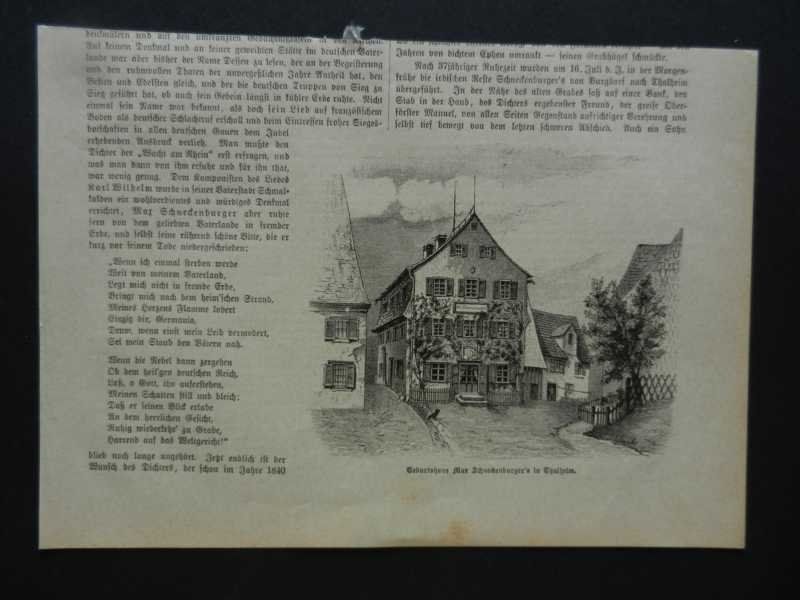 denkmälern und auf den umkränzten Gedächtnißtafeln in den Kirchen.
Auf keinem Denkmal und an keiner geweihten Stätte im deutschen Vater-
lande war aber bisher der Name Dessen zu lesen, der an der Begeisterung
und den ruhmvollen Thaten der unvergeßlichen Jahre Antheil hat, den
Besten und Edelsten gleich, und der die deutschen Truppen von Sieg zu
Sieg geführt hat, ob auch sein Gebein längst in kühler Erde ruhte. Nicht
einmal sein Name war bekannt, als doch sein Lied auf französischem
Boden als deutscher Schlachtruf erscholl und beim Eintreffen froher Sieges-
botschaften in allen deutschen Gauen dem Jubel
erhebenden Ausdruck verlieh. Man mußte den
Dichter der „Wacht am Rhein“ erst erfragen, und
was man dann von ihm erfuhr und für ihn that,
war wenig genug. Dem Komponisten des Liedes
Karl Wilhelm wurde in seiner Vaterstadt Schmal-
kalden ein wohlverdientes und würdiges Denkmal
errichtet, Max Schneckenburger aber ruhte
fern von dem geliebten Vaterlande in fremder
Erde, und selbst seine rührend schöne Bitte, die er
kurz vor seinem Tode niedergeschrieben:
„Wenn ich einmal sterben werde
Weit von meinem Vaterland,
Legt mich nicht in fremde Erde,
Bringt mich nach dem heim'schen Strand.
Meines Herzens Flamme lodert
Einzig dir, Germania,
Drum, wenn einst mein Leib vermodert,
Sei mein Staub den Vätern nah.
Wenn die Nebel dann zergehen
Ob dem heil'gen deutschen Reich,
Laß, o Gott, ihn auferstehen,
Meinen Schatten still und bleich;
Daß er seinen Blick erlabe
An dem herrlichen Gesicht,
Ruhig wiederkehr' zu Grabe,
Harrend auf das Weltgericht!“
blieb noch lange ungehört. Jetzt endlich ist der
Wunsch des Dichters, der schon im Jahre 1840
Jahren von dichtem Epheu umrankt — seinen Grabhügel schmückte.
Nach 37jähriger Ruhezeit wurden am 16. Juli d. J. in der Morgen-
frühe die irdischen Reste Schneckenburger's von Burgdorf nach Thalheim
übergeführt. In der Nähe des alten Grabes saß auf einer Bank, den
Stab in der Hand, des Dichters ergebenster Freund, der greise Ober-
förster Manuel, von allen Seiten Gegenstand aufrichtiger Verehrung und
selbst tief bewegt von dem letzten schweren Abschied. Auch ein Sohn
Geburtshaus Max Schneckenburger's in Thalheim.